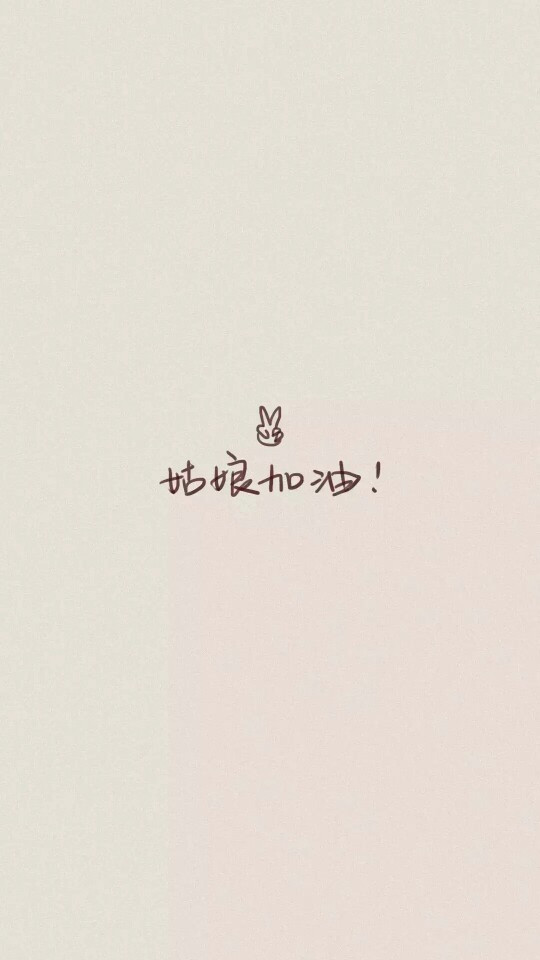 姑娘加油!